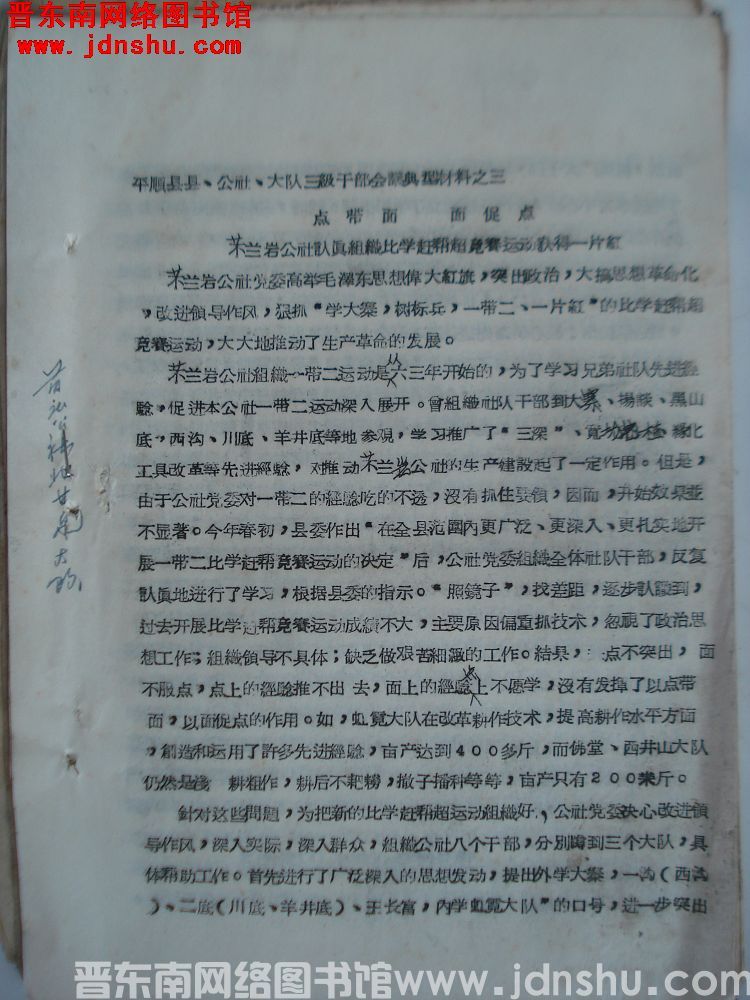 晋东南网络图书馆
www.jdnshu.com
平順县县、公社、大队三級干部会議典型材料之三
点带面 面促点
茉兰岩公社認眞組織比学赶帮超竞賽运动获得一片紅
茉兰岩公社党委高举毛澤东思想偉大紅旗，突出政治，大搞思想革命化
，改进領导作风，狠抓“学大寨，树标兵，一带二、一片紅”的比学赶帮超
竞賽运动，大大地推动了生产革命的发展。
茉兰岩公社組織一带二运动是从六三年开始的，为了学习兄弟社队先进經
驗，促进本公社一带二运动深入展开。曾組織社队干部到大寨、揚談、黑山
底、西沟、川底、羊井底等地参观，学习推广了“三深”、寬 綠化
工具改革等先进經驗，对推动茉兰岩公社的生产建設起了一定作用。但是，
由于公社党委对一带二的經驗吃的不透，沒有抓住要領，因而，开始效果並
不显著。今年春初，县委作出“在全县范圍內更广泛、更深入、更扎实地开
展一带二比学赶帮竞賽运动的决定”后，公社党委組織全体社队干部，反复
認眞地进行了学习，根据县委的指示。“照鏡子”，找差距，逐步認識到，
过去开展比学赶帮竞賽运动成績不大，主要原因偏重抓技术，忽視了政治思
想工作；組織領导不具体；缺乏做艰苦細緻的工作。結果，点不突出，面
不服点，点上的經驗推不出去，面上的經驗点上不愿学，沒有发揮了以点带
面，以面促点的作用。如，虹霓大队在改革耕作技术，提高耕作水平方面
，創造和运用了許多先进經驗，亩产达到４００多斤，而佛堂、西井山大队
仍然是浅耕粗作，耕后不耙耮，撒子播种等等，亩产只有２００来斤。
針对这些問題，为把新的比学赶帮超运动組織好，公社党委决心改进領
导作风，深入实际，深入群众，組織公社八个干部，分別蹲到三个大队，具
体帮助工作。首先进行了广泛深入的思想发动，提出外学大寨，一沟（西沟
）、二底（川底、羊井底）、王长富，內学虹霓大队”的口号，进一步突出
晋东南网络图书馆www.jdnshu.com